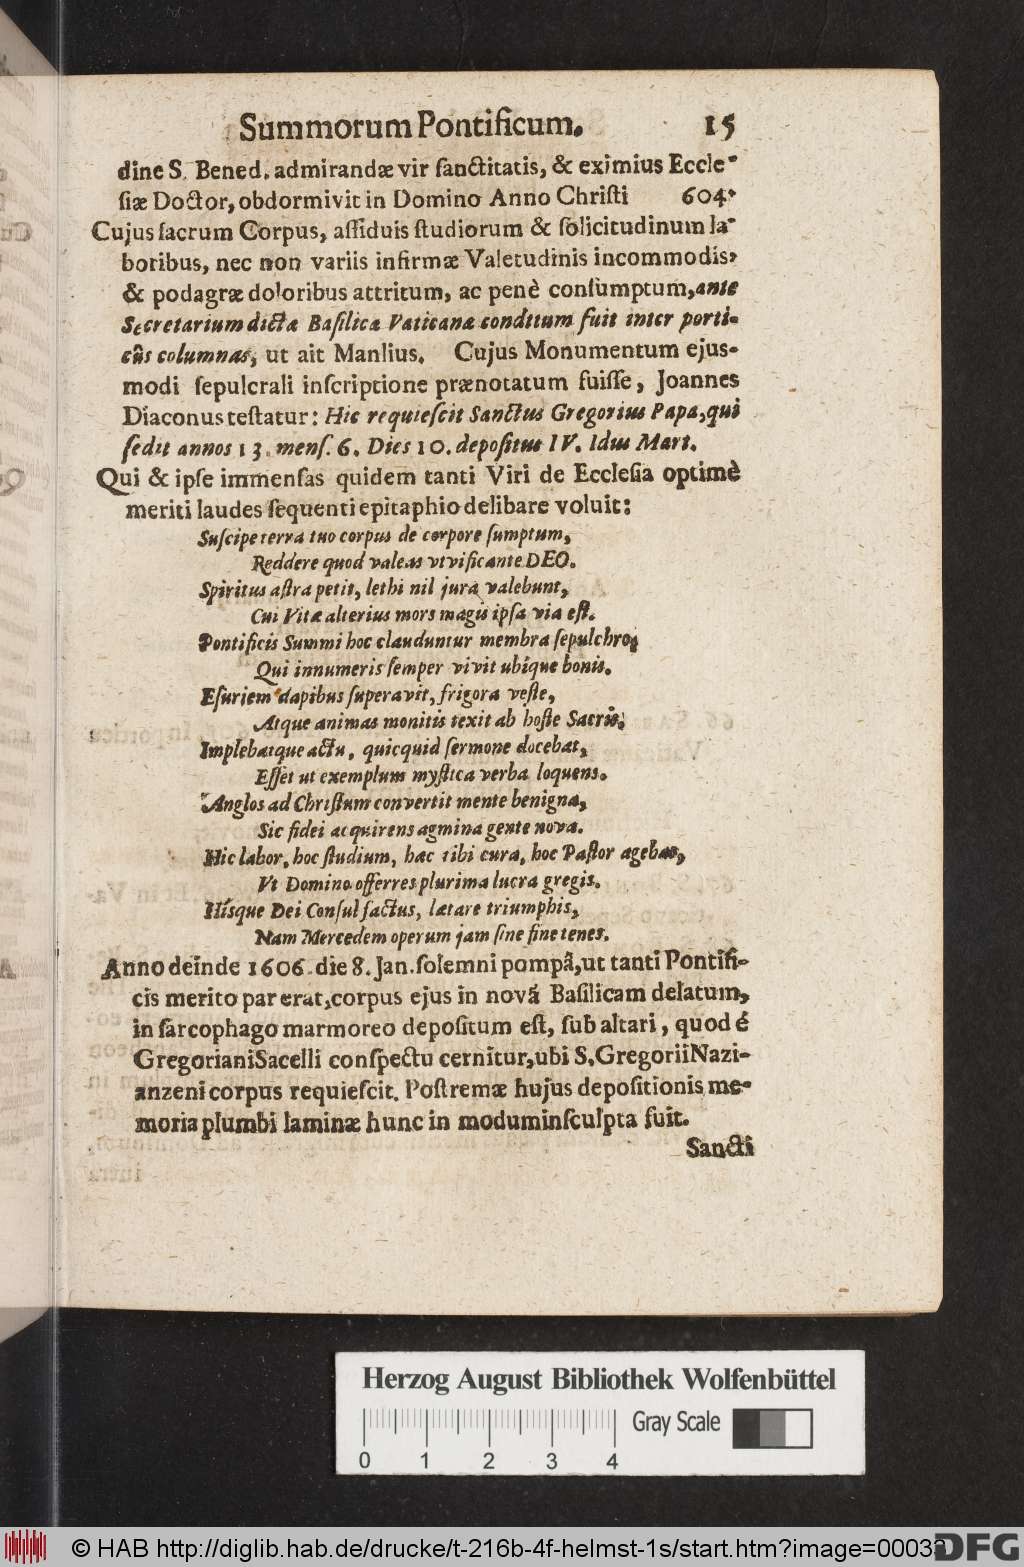 Summorum Pontificum. 15
dine S. Bened. admirandæ vir ſanctitatis, & eximius Eccle-
ſiæ Doctor, obdormivit in Domino Anno Chriſti 604.
Cujus ſacrum Corpus, aſſiduis ſtudiorum & ſolicitudinum la-
boribus, nec non variis infirmæ Valetudinis incommodis,
& podagræ doloribus attritum, ac penè conſumptum, ante
Secretarium dictæ Baſilicæ Vaticanæ conditum fuit inter porti-
cûs columnas, ut ait Manlius. Cujus Monumentum ejus-
modi ſepulcrali inſcriptione prænotatum fuiſſe, Joannes
Diaconus teſtatur: Hic requieſcit Sanctus Gregorius Papa, qui
ſedit annos 13. menſ. 6. Dies 10. depoſitus IV. Idus Mart.
Qui & ipſe immenſas quidem tanti Viri de Eccleſia optimè
meriti laudes ſequenti epitaphio delibare voluit:
Suſcipe terra tuo corpus de corpore ſumptum,
Reddere quod valeas vivificante DEO.
Spiritus aſtra petit, lethi nil jura valebunt,
Cui Vitæ alterius mors magis ipſa via eſt.
Pontificis Summi hoc clauduntur membra ſepulchro,
Qui innumeris ſemper vivit ubique bonis.
Eſuriem dapibus ſuperavit, frigora veſte,
Atque animas monitis texit ab hoſte Sacris,
Implebatque actu, quicquid ſermone docebat,
Eſſet ut exemplum myſtica verba loquens.
Anglos ad Chriſtum convertit mente benigna,
Sic fidei acquirens agmina gente nova.
Hic labor, hoc ſtudium, hæc tibi cura, hoc Paſtor agebas,
Vt Domino offerres plurima lucra gregis.
Hisque Dei Conſul factus, lætare triumphis,
Nam Mercedem operum jam ſine fine tenes.
Anno deinde 1606. die 8. Jan. ſolemni pompâ, ut tanti Pontifi-
cis merito par erat, corpus ejus in novâ Baſilicam delatum,
in ſarcophago marmoreo depoſitum eſt, ſub altari, quod é
Gregoriani Sacelli conſpectu cernitur, ubi S. Gregorii Nazi-
anzeni corpus requieſcit. Poſtremæ hujus depoſitionis me-
moria plumbi laminæ hunc in modum inſculpta fuit.
Sancti
Herzog August Bibliothek Wolfenbüttel
Gray Scale
0 1 2 3 4
© HAB http://diglib.hab.de/drucke/t-216b-4f-helmst-1s/start.htm?image=00033
DFG